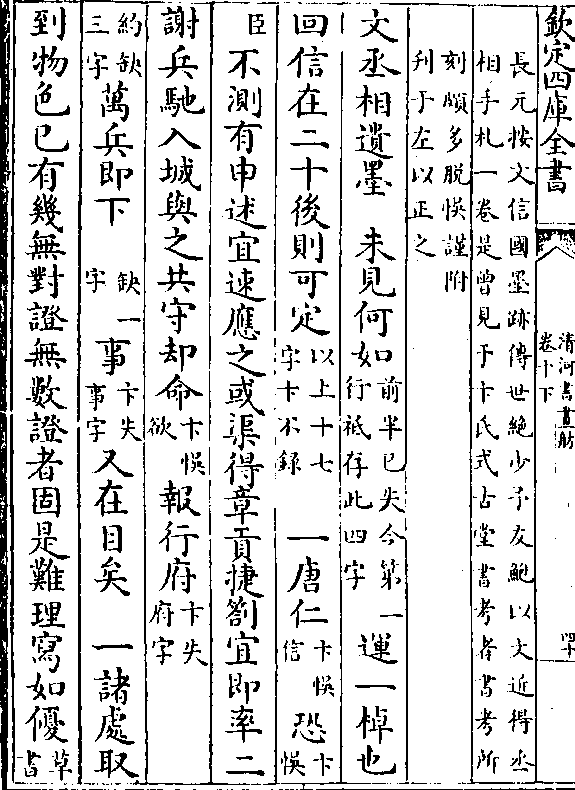 欽定四庫全書 清河書畫舫 卷十下
長元按文信國墨跡傳世絶少予友鮑以文近得丞
相手札一卷是曾見于卞氏式古堂書考者書考所
刻頗多脱悮謹附
刋于左以正之
文丞相遺墨 未見何如前半已失今第一行祇存此四字運一棹也
回信在二十後則可定以上十七字卞不録 一唐仁卞悮信恐卞悮
臣不測有申述宜速應之或渠得章貢捷劄宜即率二
謝兵馳入城與之共守却命卞悮欲報行府卞失府字
約缺三字萬兵即下缺字一事卞失事字又在目矣 一諸處取
到物色已有幾無對證無數證者固是難理寫如優草書